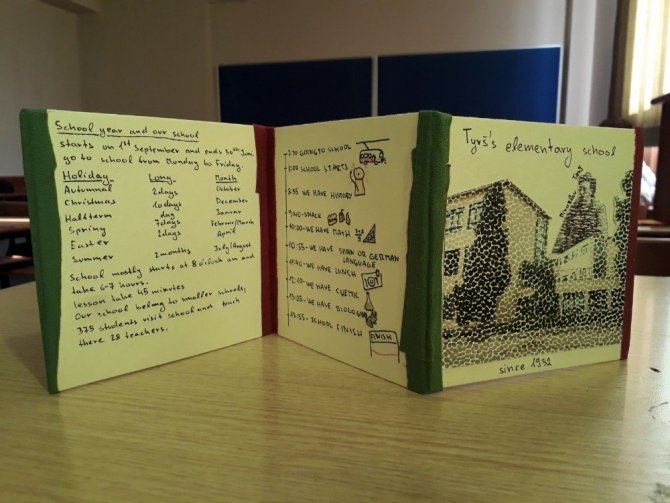 School year and our school
starts on 1st September and ends 30th June.
go to school from Monday to Friday.
Holiday. Long. Month
Autumnal 2days October
Christmas 10days December
Halfterm day Januar
Spring 7days Februar/March
Easter 2days April
Summer 2months July/August
School mostly starts at 8 o'cloh am and
take 6-7 hours.
lesson take 45 minutes
Our school belong to smaller schools,
375 students visit school and teach
there 28 teachers.
7:30 GOING TO SCHOOL
8:00 SCHOOL STARTS
8:55 WE HAVE HISTORY
9:40-SNACK
10:00-WE HAVE MATH
10:55-WE HAVE SPAIN OR GERMAN
LANGUAGE
11:40-WE HAVE LUNCH
12:10-WE HAVE CHEMIK
13:05-WE HAVE BIOLOGI
13:55-SCHOOL FINISH
FINISH
Tyrš's elementary school
since 1932